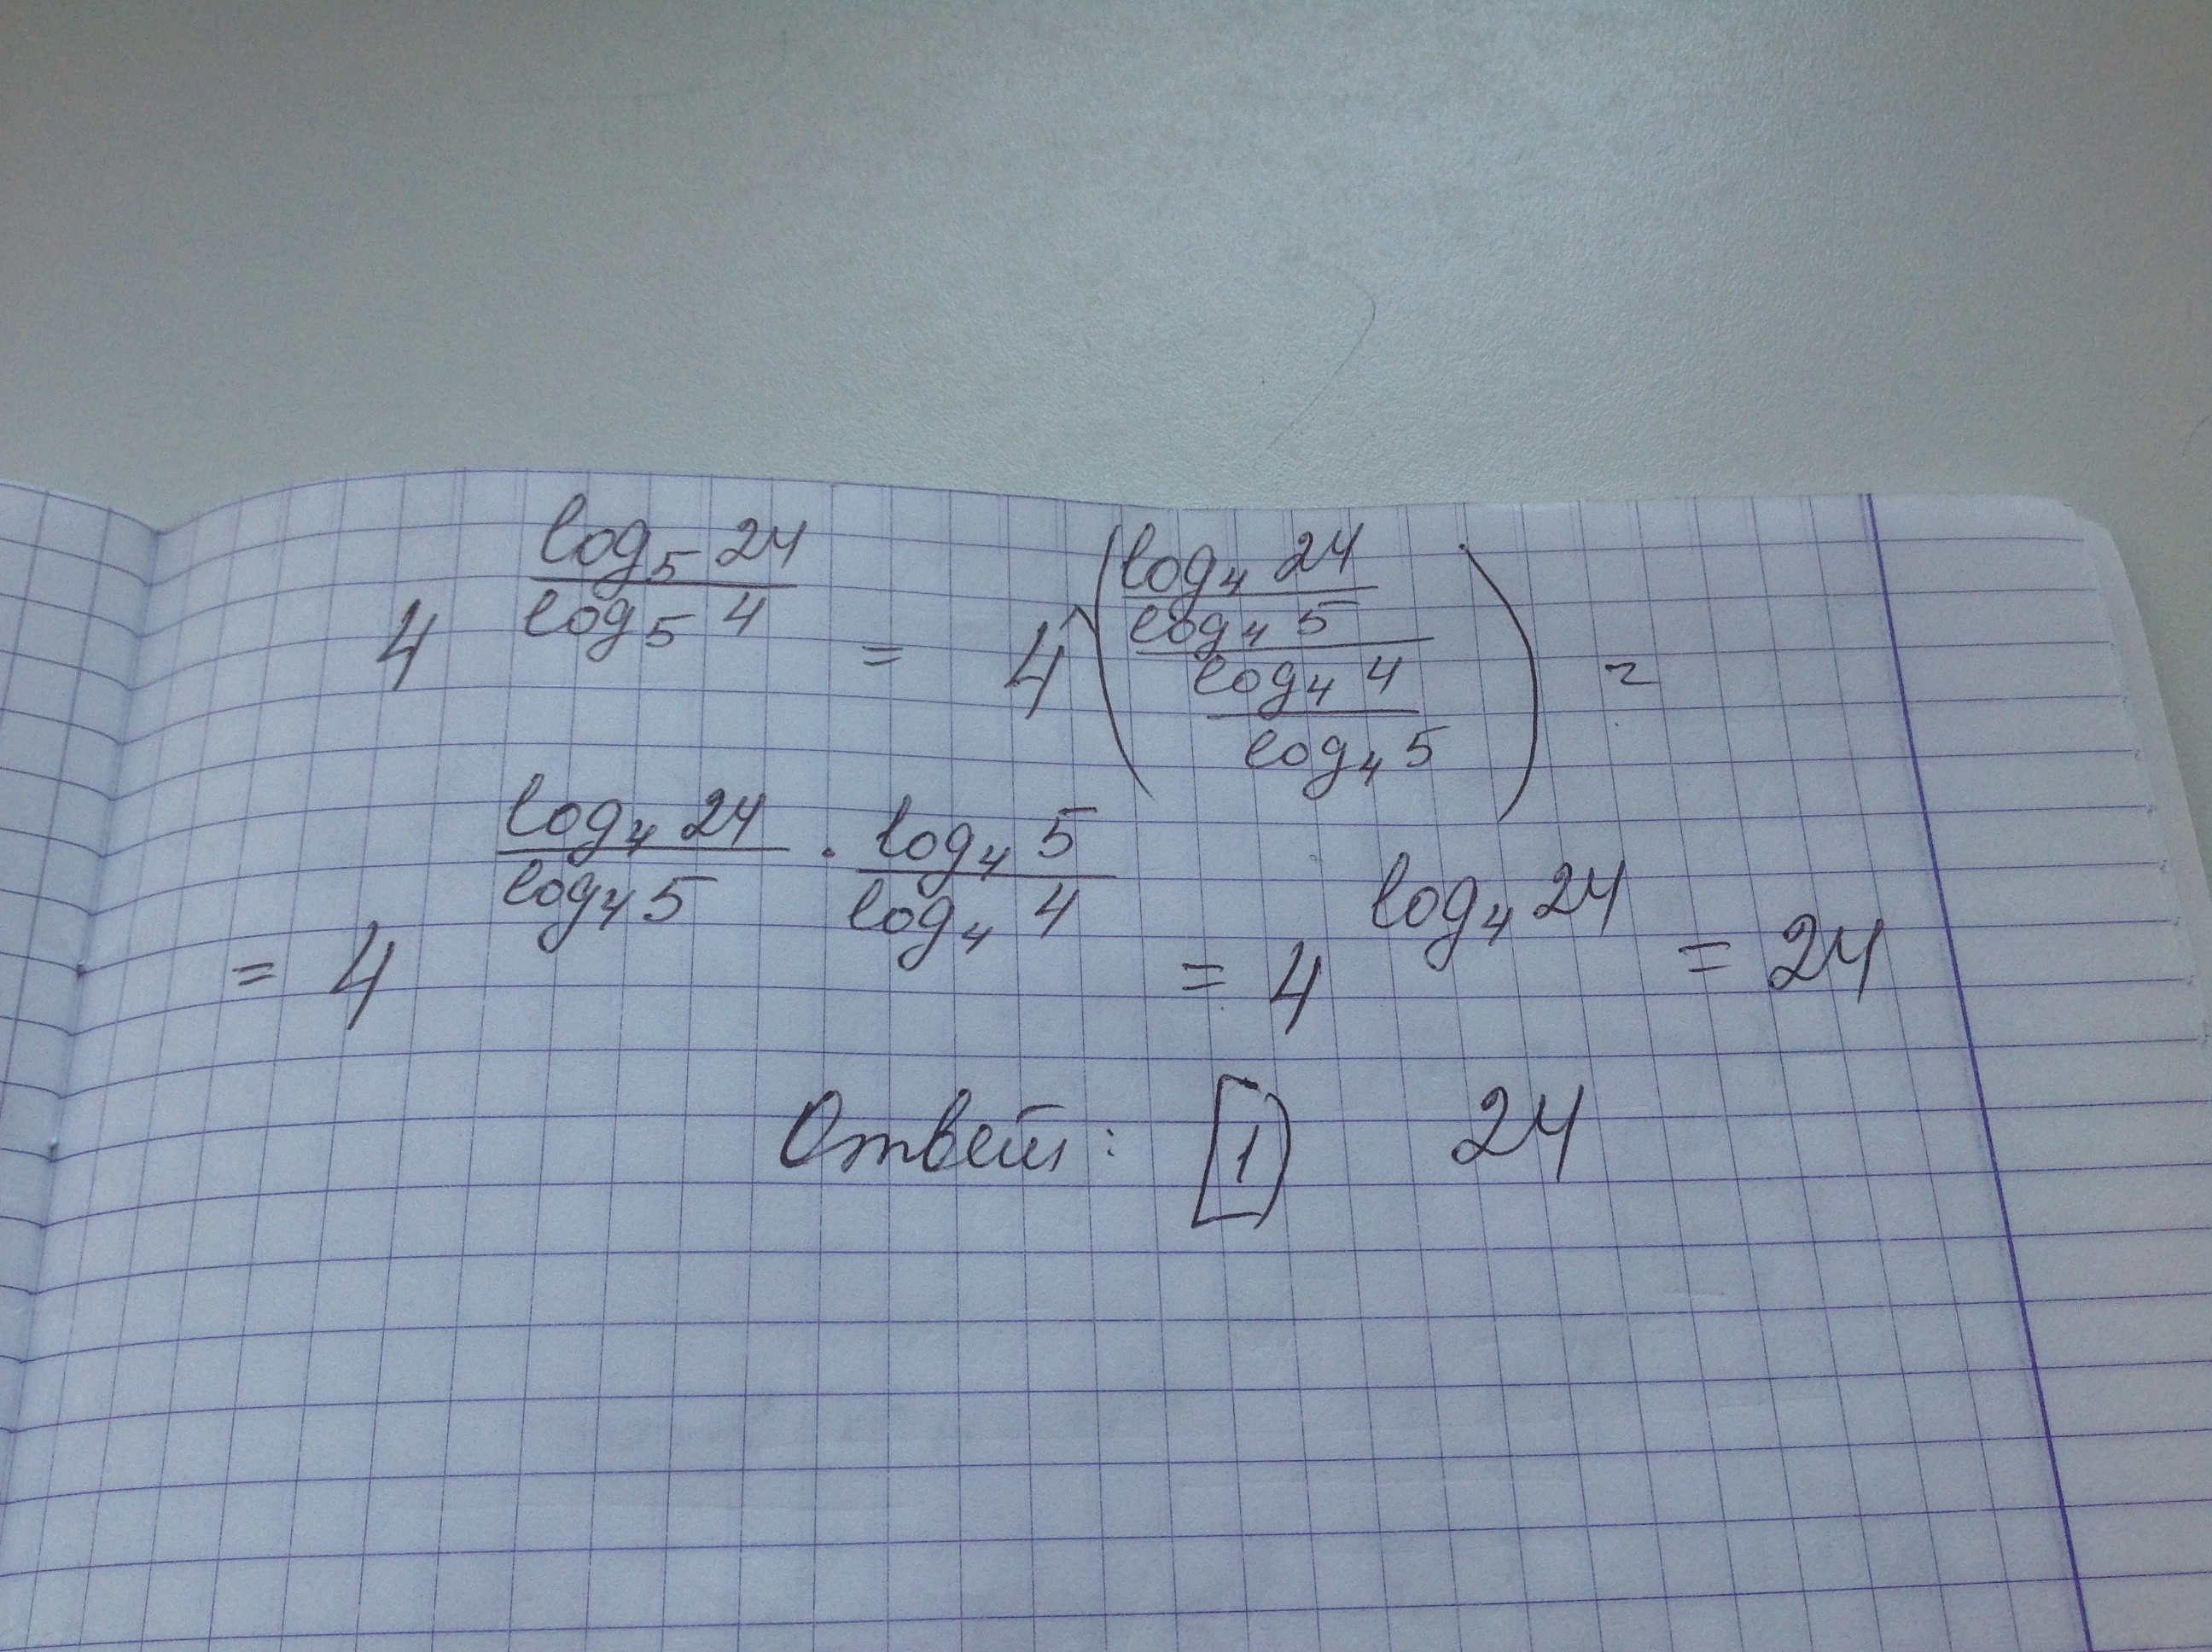 4^(log₅ 24 / log₅ 4) = 4^((log₄ 24 / log₄ 5) / (log₄ 4 / log₄ 5)) =
= 4^(log₄ 24 / log₄ 5 · log₄ 5 / log₄ 4) = 4^(log₄ 24) = 24
Ответ: 1 24